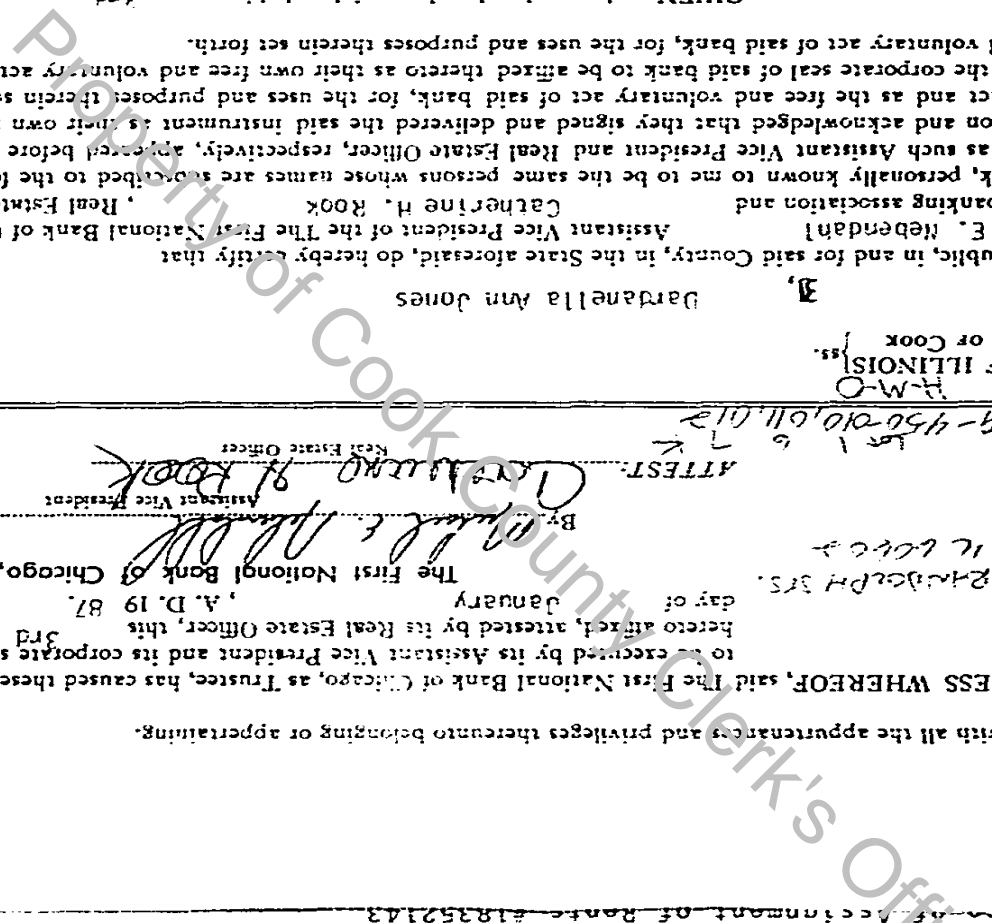 of Assignment of Rents #18352143
with all the appurtenances and privileges thereunto belonging or appertaining.
ESS WHEREOF, said The First National Bank of Chicago, as Trustee, has caused these
to be executed by its Assistant Vice President and its corporate s
hereto affixed, attested by its Real Estate Officer, this 3rd
day of January , A. D. 19 87.
RANDOLPH STS.
The First National Bank of Chicago,
By
Assistant Vice President
ATTEST:
Real Estate Officer
-450-010,011,012
H-M-O
ILLINOIS
or Cook } ss.
I, Dardanella Ann Jones
ublic, in and for said County, in the State aforesaid, do hereby certify that
E. Hebendahl Assistant Vice President of the The First National Bank of
banking association and Catherine H. Rook , Real Estate
k, personally known to me to be the same persons whose names are subscribed to the fo
as such Assistant Vice President and Real Estate Officer, respectively, appeared before
on and acknowledged that they signed and delivered the said instrument as their own
ct and as the free and voluntary act of said bank, for the uses and purposes therein s
the corporate seal of said bank to be affixed thereto as their own free and voluntary act
voluntary act of said bank, for the uses and purposes therein set forth.
GIVEN
Property of Cook County Clerk's Offi